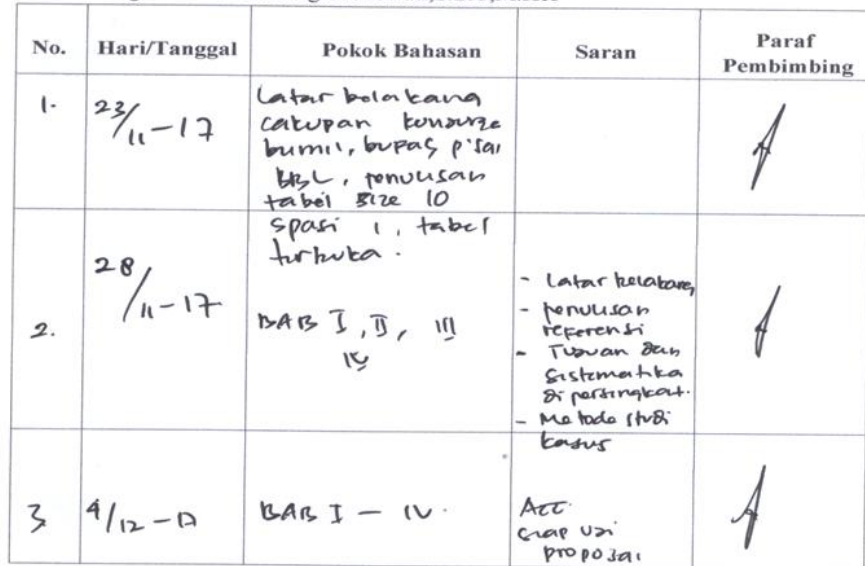 No.
Hari/Tanggal
Pokok Bahasan
Saran
Paraf
Pembimbing
1.
23/11-17
Latar belakang
cakupan
bumil, bufas,
BBL, penulisan
tabel size 10
spasi 1, tabel
terbuka.
2.
28/11-17
BAB I, II, III
IV
- Latar belakang
- penulisan
referensi
- Tujuan dan
sistematika
dipersingkat.
- Metode studi
kasus
3
4/12-17
BAB I - IV.
Acc
siap uji
proposal